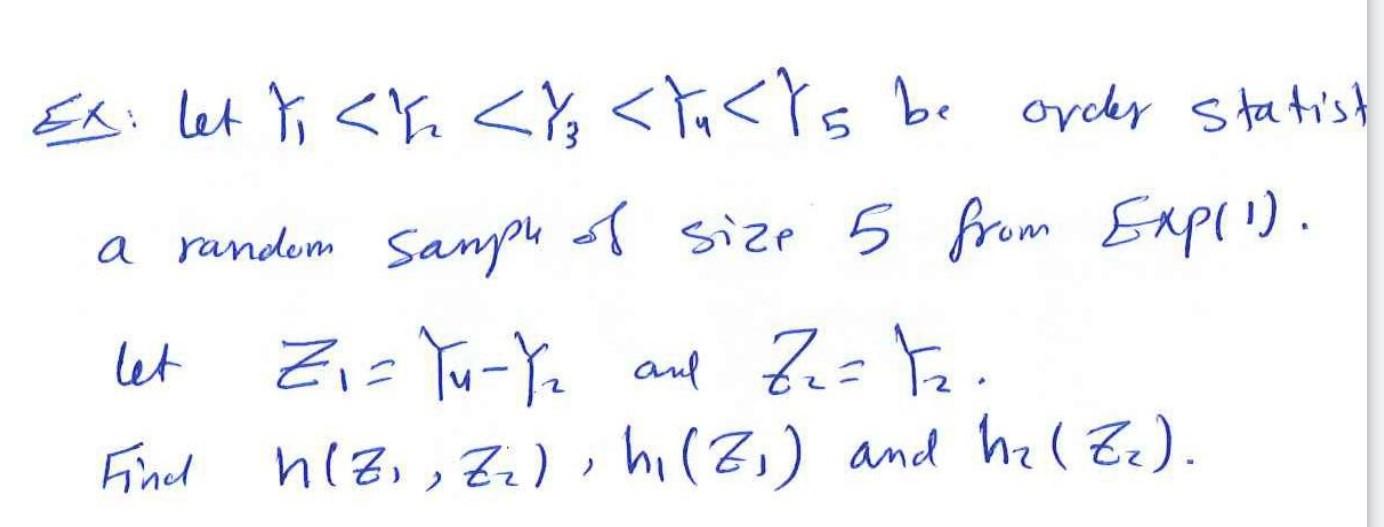 Ex: let Y₁ < Y₂ < Y₃ < Y₄ < Y₅ be order statist
a random sample of size 5 from Exp(1).
let Z₁ = Y₄ - Y₂ and Z₂ = Y₂.
Find h(Z₁, Z₂), h₁(Z₁) and h₂(Z₂).